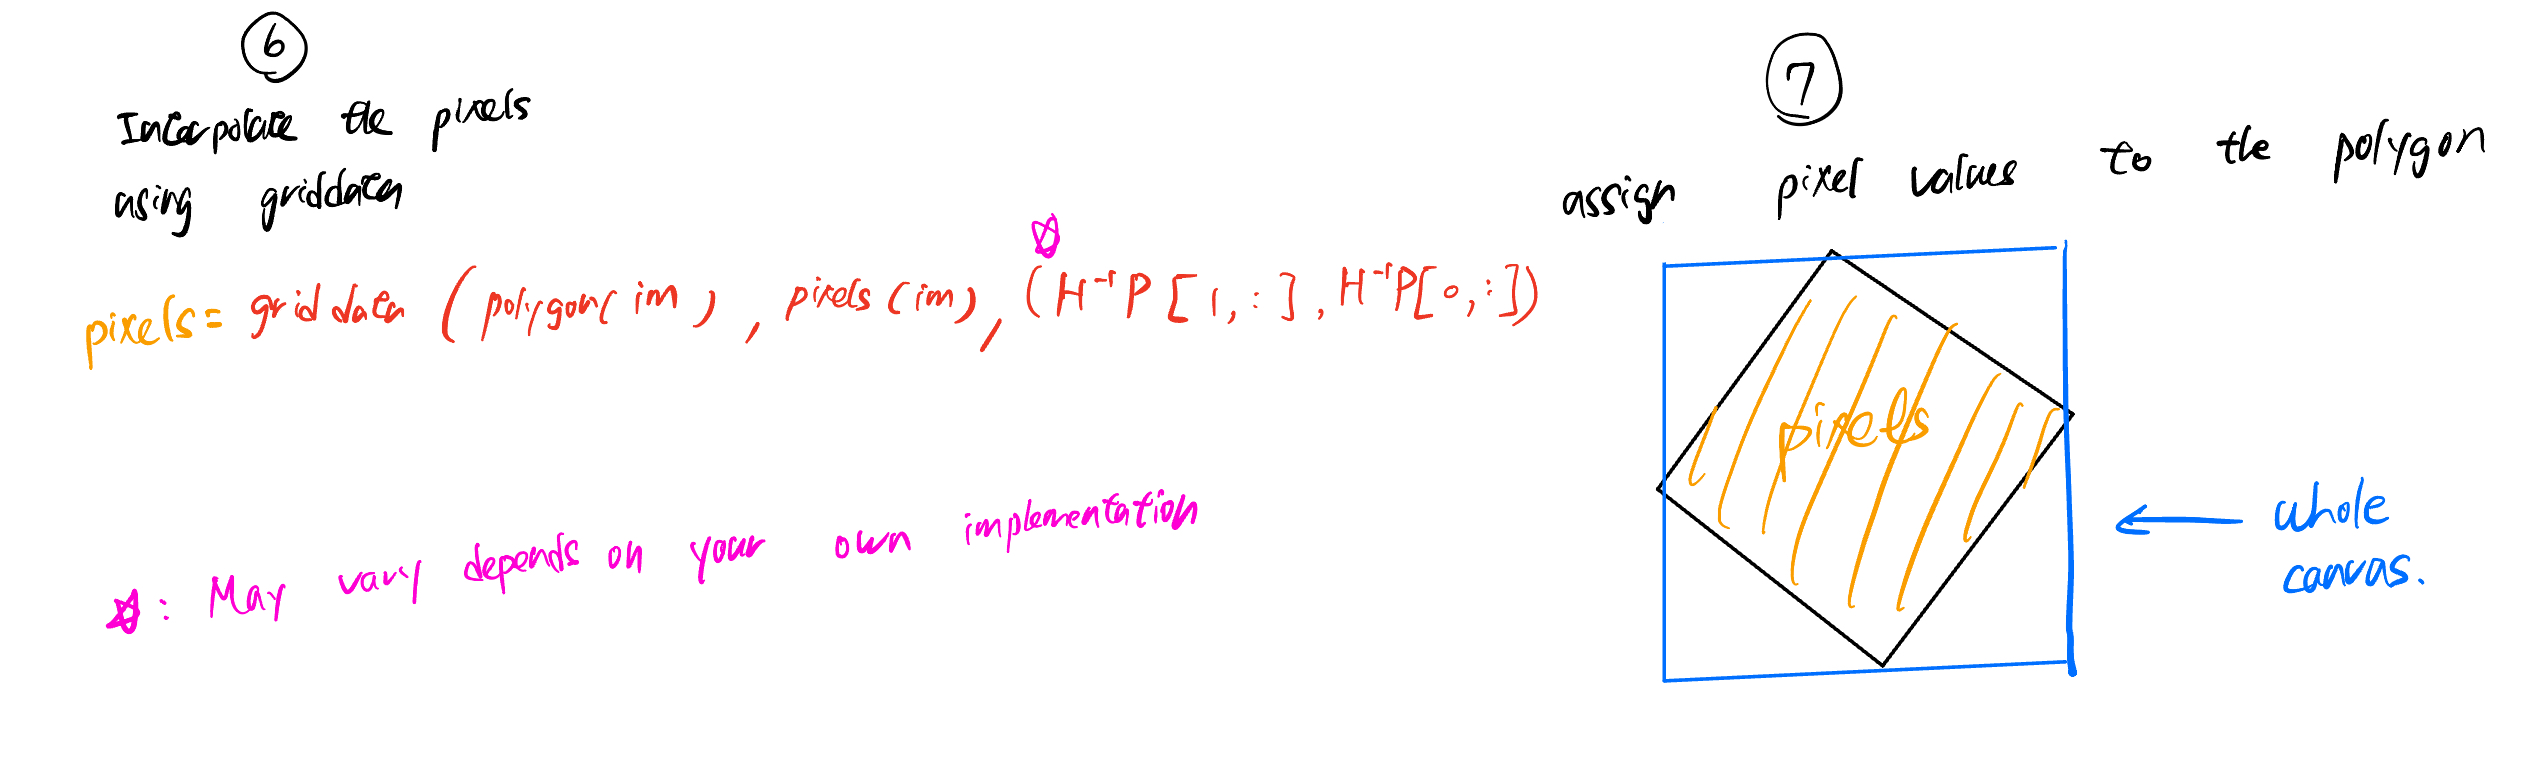 6
Interpolate the pixels
using griddata
pixels = griddata (polygon(im), pixels(im), (H⁻¹P[1,:], H⁻¹P[0,:])
☆
☆: May vary depends on your own implementation
7
assign pixel values to the polygon
pixels
whole
canvas.